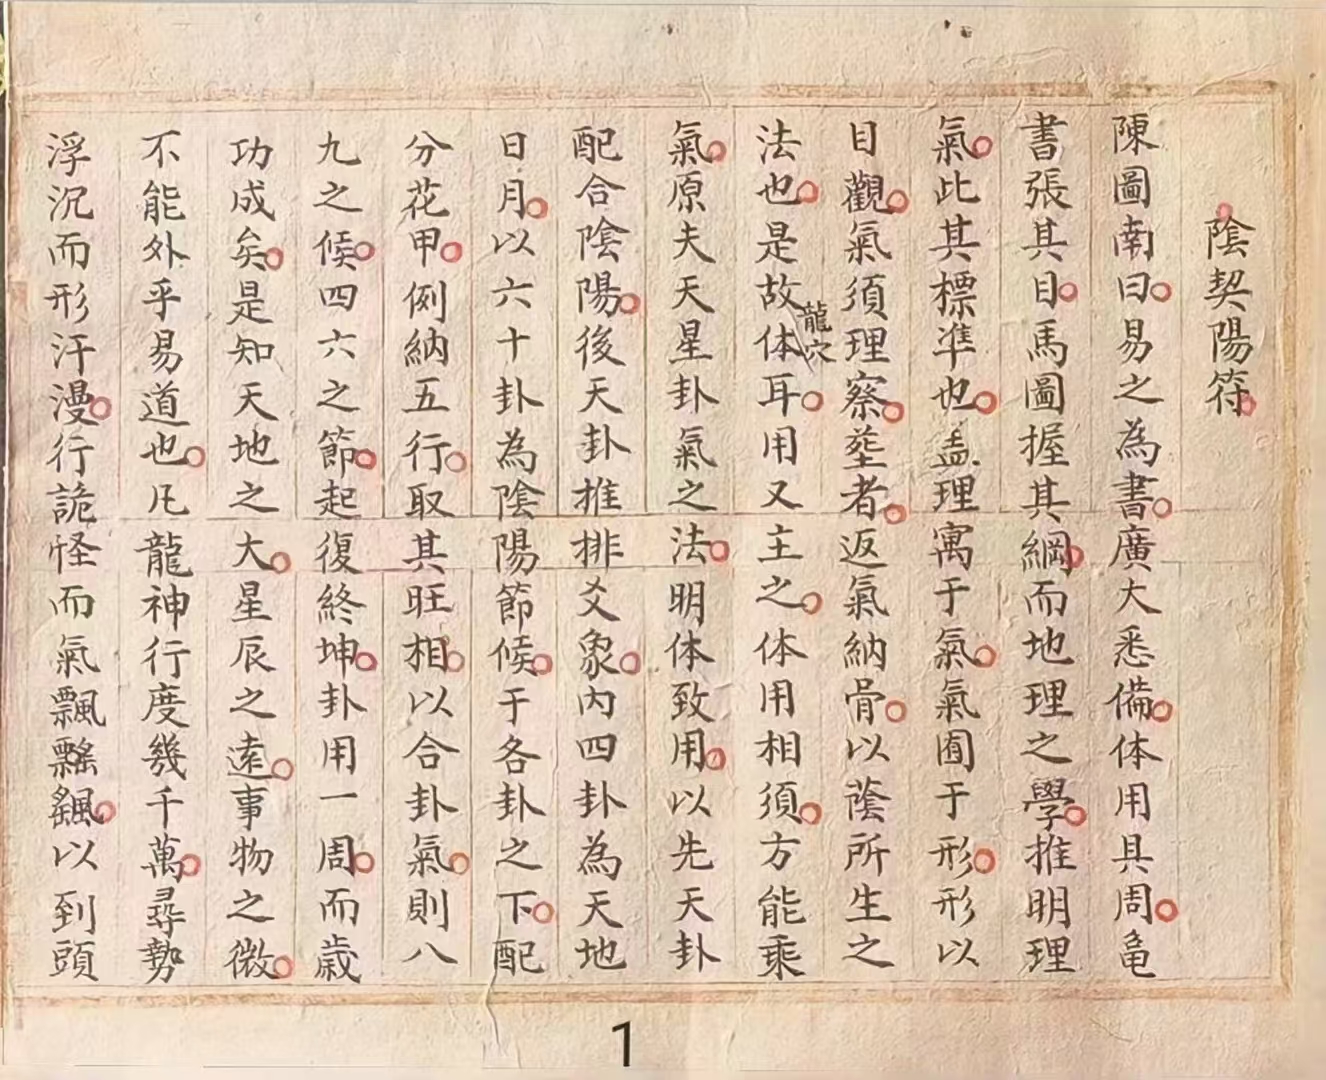 陰契陽符
陳圖南曰易之為書廣大悉備体用具周龜
書張其目馬圖握其綱而地理之學推明理
氣此其標準也盖理寓于氣氣囿于形形以
目觀氣須理察塟者返氣納骨以蔭所生之
法也是故体龍穴耳用又主之体用相須方能乘
氣原夫天星卦氣之法明体致用以先天卦
配合陰陽後天卦推排爻象内四卦為天地
日月以六十卦為陰陽節候于各卦之下配
分花甲例納五行取其旺相以合卦氣則八
九之候四六之節起復終坤卦用一周而歲
功成矣是知天地之大星辰之遠事物之微
不能外乎易道也凡龍神行度幾千萬尋勢
浮沉而形汗漫行詭怪而氣飄飖颻以到頭
1